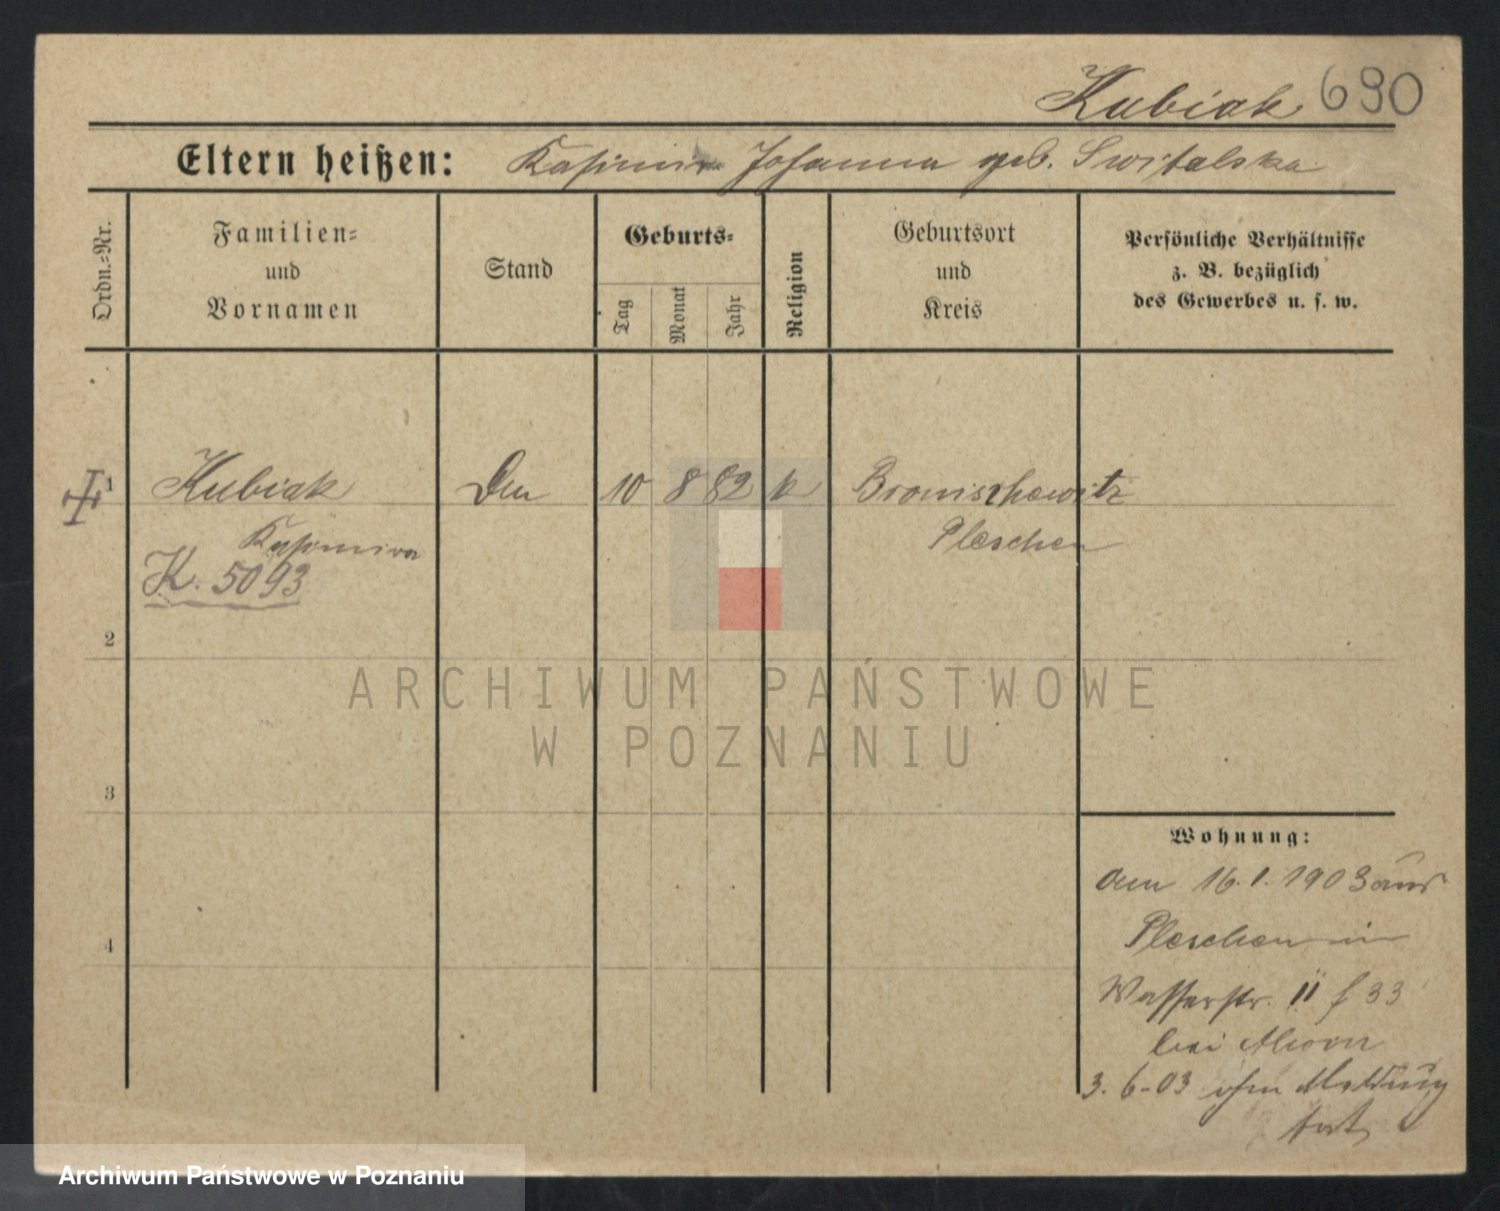 Kubiak 690
Eltern heißen: Kasimir Johanna geb. Switalska
Ordn.-Nr.
Familien-
und
Vornamen
Stand
Geburts-
Tag
Monat
Jahr
Religion
Geburtsort
und
Kreis
Persönliche Verhältnisse
z. B. bezüglich
des Gewerbes u. s. w.
1 Kubiak 10 8 82 k Bronischewitz
Kasimira Pleschen
K. 5093
2
3
4
Wohnung:
am 16.1.1903 aus
Pleschen in
Wasserstr. II f 33
bei
3.6-03 ohne Meldung
fort
ARCHIWUM PAŃSTWOWE
W POZNANIU
Archiwum Państwowe w Poznaniu